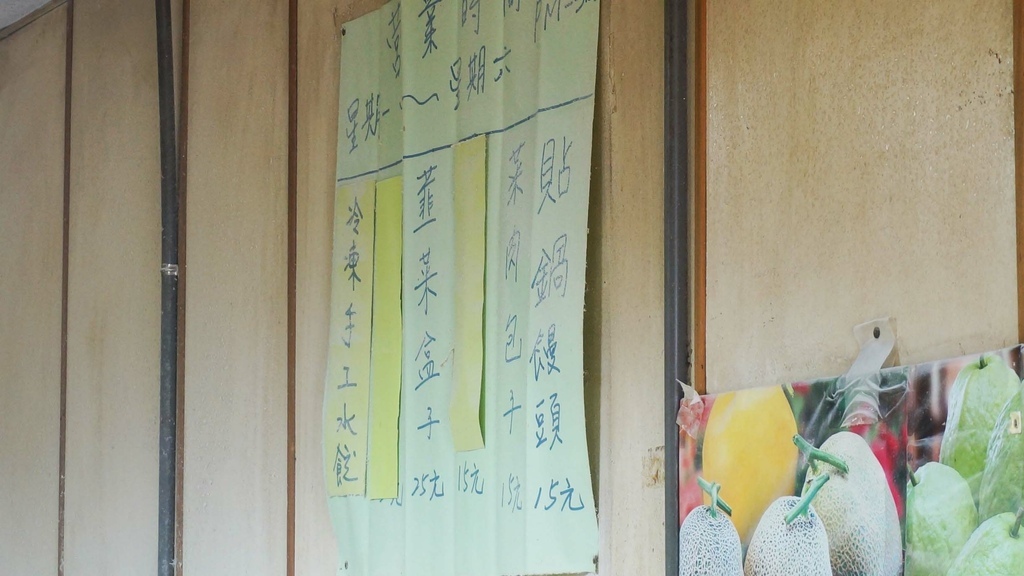 營業時間
星期一～星期六
貼鍋饅頭 15元
菜肉包子 15元
15元
韮菜盒子 25元
元
冷凍手工水餃